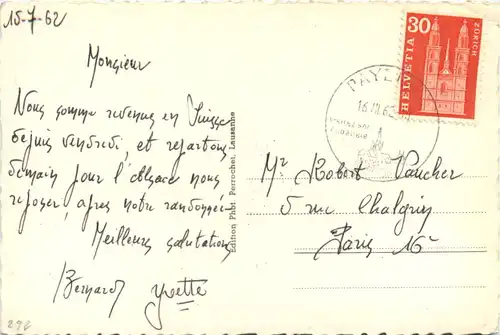 15-7-62
Monsieur
Nous somme revenus en Suisse
depuis vendredi, et repartons
demain pour l'alsace nous
reposer, apres notre randonnée
Meilleures salutations
Bernard Yvette
292
Edition Phot. Perrochet, Lausanne
30
ZÜRICH
HELVETIA
PAYE
Mr Robert Vaucher
5 rue Chalgrin
Paris 16e